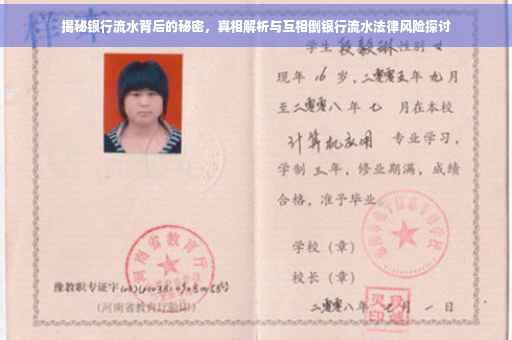 揭秘银行流水背后的秘密，真相解析与互相倒银行流水法律风险探讨
样本
学生段毅琳性别女
现年16岁,二零零五年九月
至二零零八年七月在本校
计算机应用专业学习,
学制三年,修业期满,成绩
合格,准予毕业
学校（章）
河南省教育厅
校长（章）
豫教职专证字
(河南省教育厅验印)
二零零八年七月一日